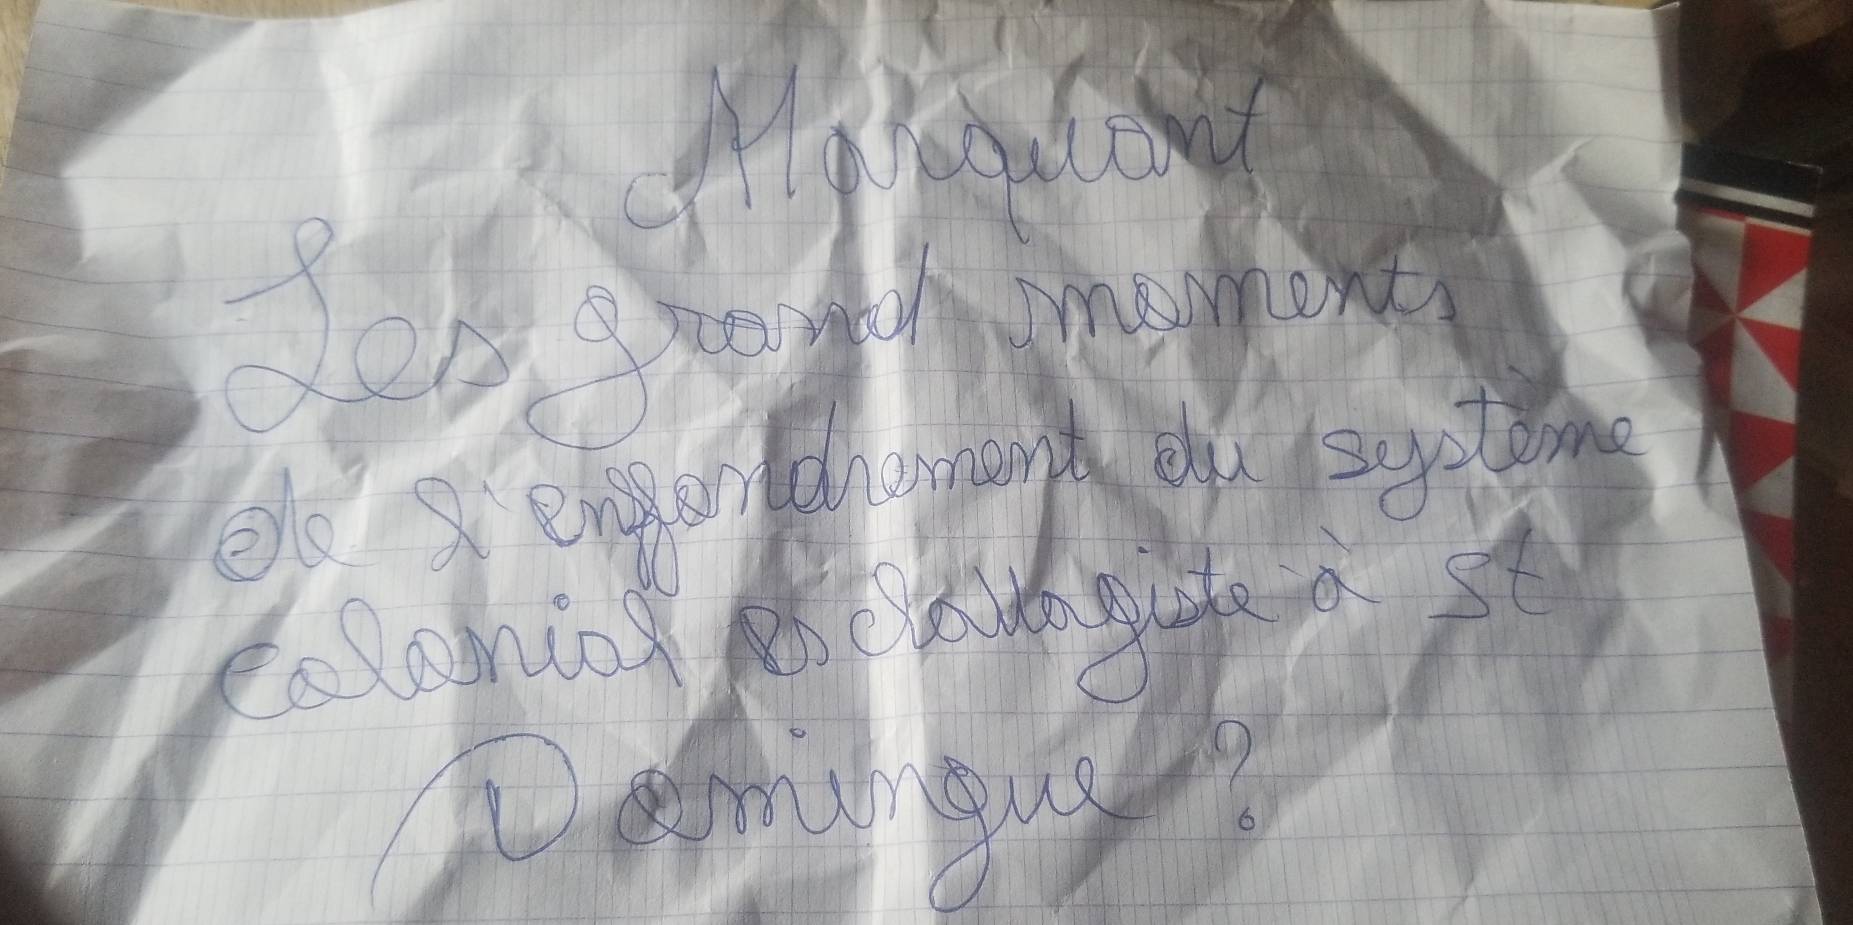 Marquant
Les grand moments
de l'enffondrement du système
colonial esclavagiste à St
Domingue ?